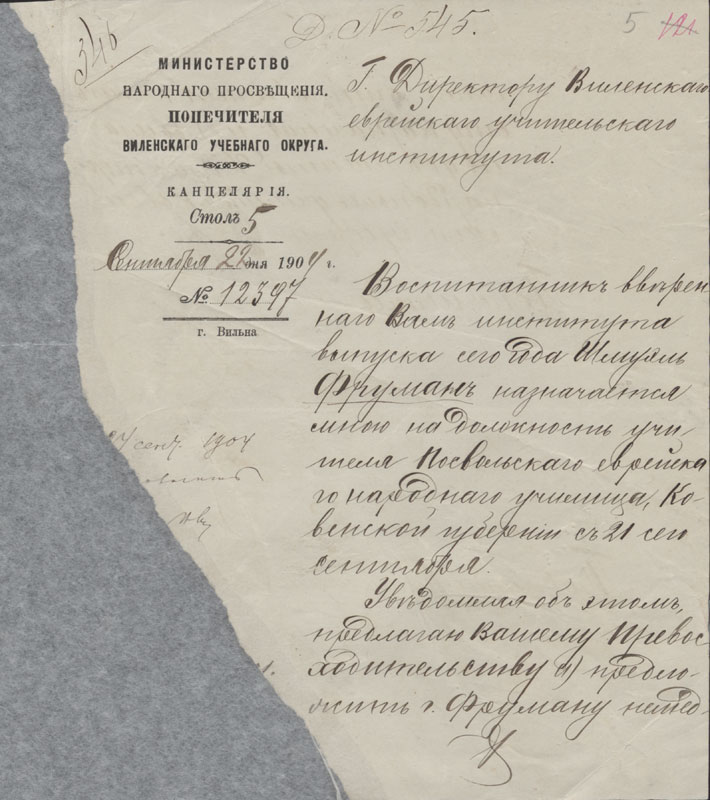 Д. № 545.
5
121
346
МИНИСТЕРСТВО
НАРОДНАГО ПРОСВѢЩЕНІЯ.
ПОПЕЧИТЕЛЯ
ВИЛЕНСКАГО УЧЕБНАГО ОКРУГА.
КАНЦЕЛЯРІЯ.
Столъ 5
Сентября 22 дня 1904 г.
№ 12397
г. Вильна
Г. Директору Виленскаго
еврейскаго учительскаго
института.
Воспитанникъ ввѣрен
наго Вамъ института
выпуска сего года Шмуэль
Фруманъ назначается
мною на должность учи
теля Посвольскаго еврейска
го народнаго училища, Ко-
венской губерніи съ 21 сего
сентября.
Увѣдомляя объ этомъ,
предлагаю Вашему Превос
ходительству а) предло-
жить г. Фруману немед-
сент. 1904